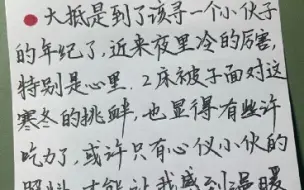 大抵是到了该寻一个小伙子
的年纪了,近来夜里冷的厉害,
特别是心里。2床被子面对这
寒冬的挑衅,也显得有些许
吃力了,或许只有心仪小伙的
照料,才能让我感到温暖